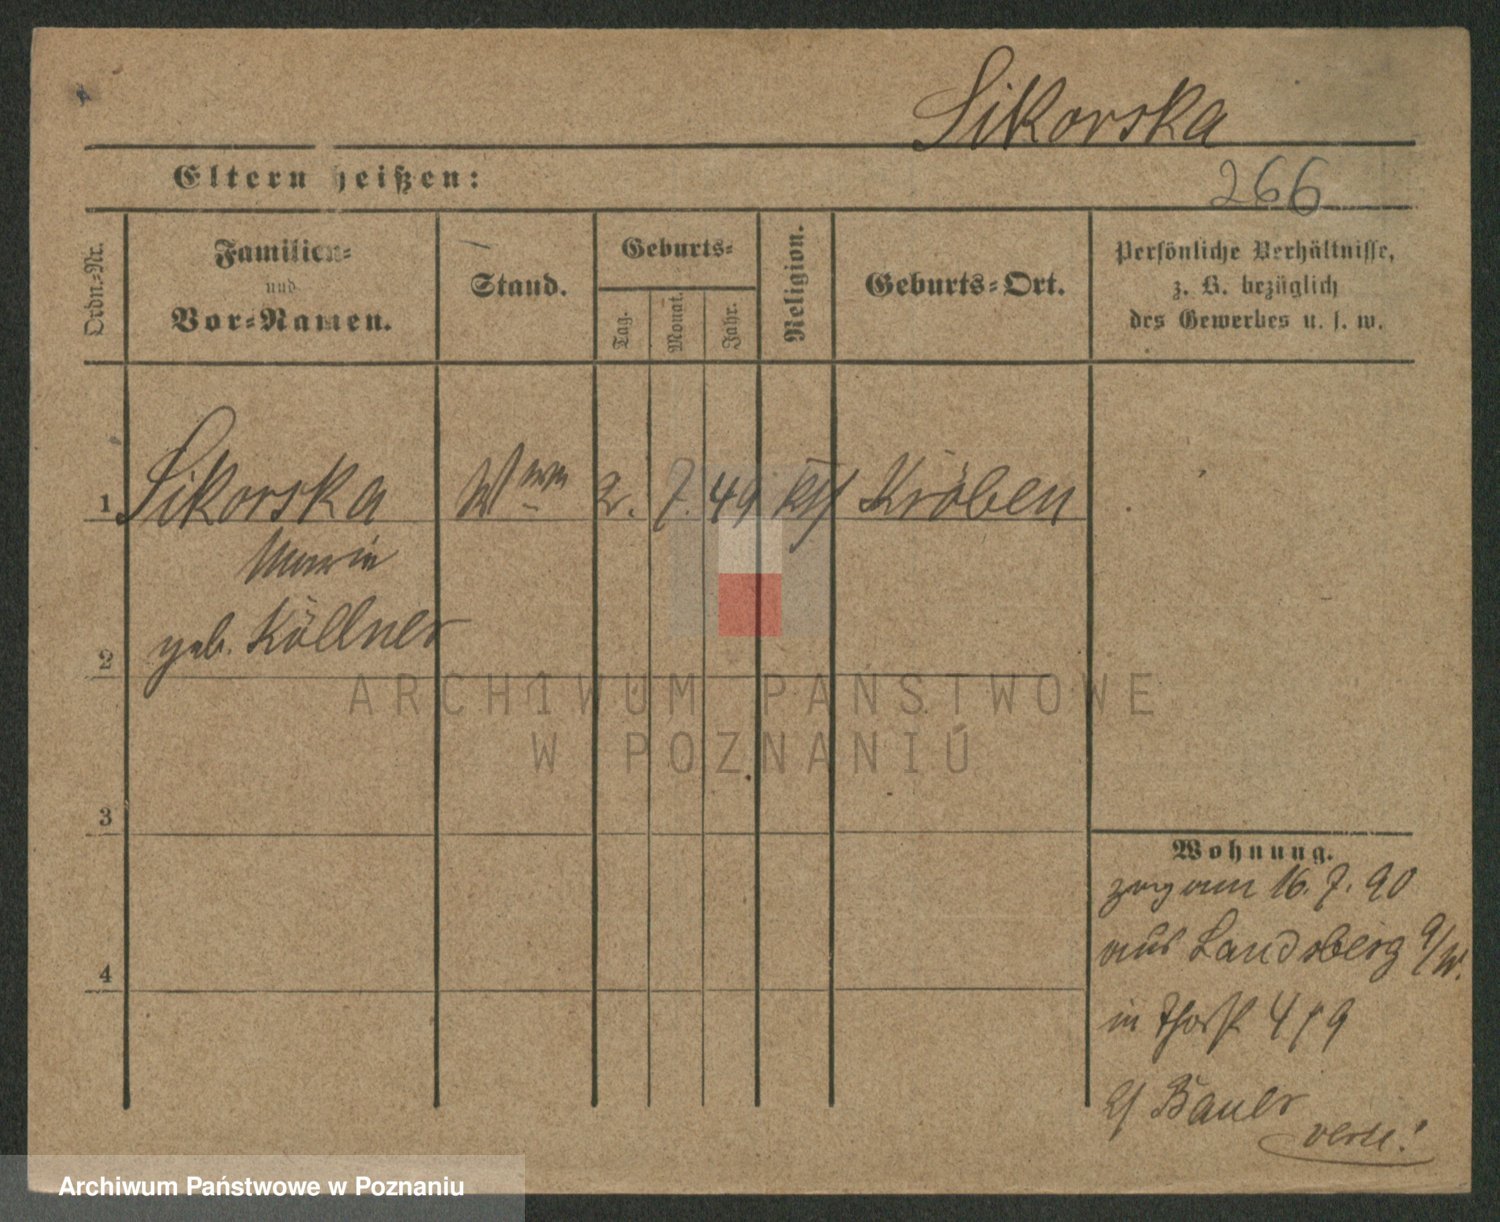 Sikorska
Eltern heißen:
266
Ordn.-Nr.
Familien-
und
Vor-Namen.
Stand.
Geburts-
Tag.
Monat.
Jahr.
Religion.
Geburts-Ort.
Persönliche Verhältnisse,
z. B. bezüglich
des Gewerbes u. s. w.
1 Sikorska Wwe 2. 7. 49 kth Kröben
Marie
geb. Köllner
2
ARCHIWUM PAŃSTWOWE
W POZNANIU
3
Wohnung.
zugezogen 16. 7. 90
aus Landsberg a/W.
4
in Thorstr 4/9
b/ Bauer
verte!
Archiwum Państwowe w Poznaniu